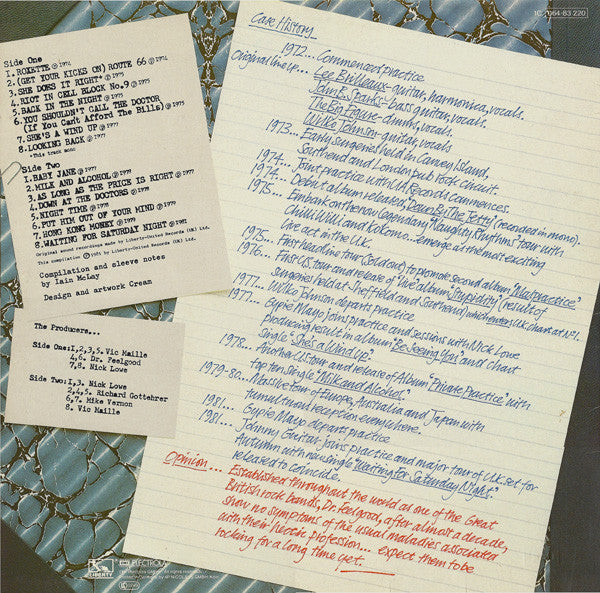 1C 064-83 220
Side One
1. ROXETTE ℗ 1974
2. (GET YOUR KICKS ON) ROUTE 66 ℗ 1974
3. SHE DOES IT RIGHT* ℗ 1975
4. RIOT IN CELL BLOCK No.9 ℗ 1975
5. BACK IN THE NIGHT ℗ 1975
6. YOU SHOULDN'T CALL THE DOCTOR
(If You Can't Afford The Bills) ℗ 1975
7. SHE'S A WIND UP ℗ 1977
8. LOOKING BACK ℗ 1977
*This track mono
Side Two
1. BABY JANE ℗ 1977
2. MILK AND ALCOHOL ℗ 1978
3. AS LONG AS THE PRICE IS RIGHT ℗ 1977
4. DOWN AT THE DOCTORS ℗ 1978
5. NIGHT TIME ℗ 1978
6. PUT HIM OUT OF YOUR MIND ℗ 1979
7. HONG KONG MONEY ℗ 1979
8. WAITING FOR SATURDAY NIGHT ℗ 1981
Original sound recordings made by Liberty-United Records (UK) Ltd.
This compilation ℗ 1981 by Liberty-United Records (UK) Ltd.
Compilation and sleeve notes
by Iain McLay
Design and artwork Cream
The Producers...
Side One:1,2,3,5. Vic Maille
4,6. Dr. Feelgood
7,8. Nick Lowe
Side Two:1,3. Nick Lowe
2,4,5. Richard Gottehrer
6,7. Mike Vernon
8. Vic Maille
Case History
1972... Commenced practice
Original line up... Lee Brilleaux-guitar, harmonica, vocals.
John B. Sparks-bass guitar, vocals.
The Big Figure-drums, vocals.
Wilko Johnson-guitar, vocals
1973... Early surgeries held in Canvey Island,
Southend and London pub rock circuit.
1974... Joint practice with UA Records commences.
1974... Debut album released, "Down By The Jetty" (recorded in mono).
1975... Embark on the now legendary, "Naughty Rhythms" tour with
Chilli Willi and Kokomo... emerge as the most exciting
live act in the U.K.
1975... First headline tour (sold out) to promote second album "Malpractice"
1976... First US tour and release of 'live' album "Stupidity" (result of
surgeries held at Sheffield and Southend) which enters U.K. chart at No 1.
1977... Wilko Johnson departs practice
1977... Gypie Mayo joins practice and sessions with Nick Lowe
producing result in album "Be Seeing You" and chart
single "She's a Wind Up".
1978... Another US tour and release of Album "Private Practice" with
top ten single "Milk and Alcohol."
1979-80... Massive tour of Europe, Australia and Japan with
tumultuent reception everywhere.
1981... Gypie Mayo departs practice
1981... Johnny Guitar joins practice and major tour of U.K. set for
Autumn with new single "Waiting For Saturday Night."
released to coincide.
Opinion... Established throughout the world as one of the Great
British rock bands, Dr. Feelgood, after almost a decade,
show no symptoms of the usual maladies associated
with their hectic profession... expect them to be
rocking for a long time yet.
LIBERTY
EMI ELECTROLA